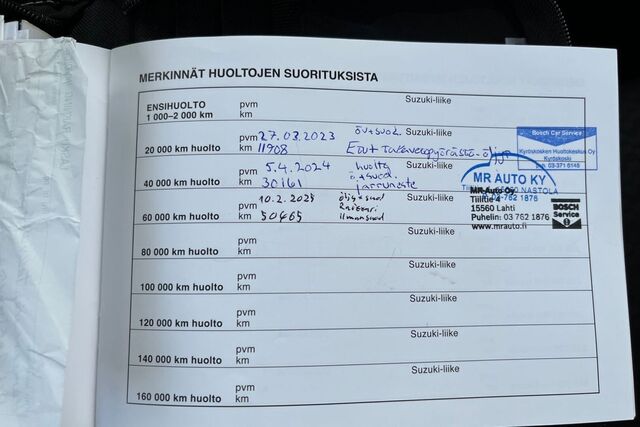 MERKINNÄT HUOLTOJEN SUORITUKSISTA
ENSIHUOLTO pvm Suzuki-liike
1 000–2 000 km km
pvm 27.03.2023 öv+suod. Suzuki-liike
20 000 km huolto km 11908 Etu+ Takavetopyörästö-öljyt
Bosch Car Service
Kyröskosken Huoltokeskus Oy
Kyröskoski
Puh. 03-371 6148
pvm 5.4.2024 huolto Suzuki-liike
40 000 km huolto km 30161 ö+suod. jarruneste
MR AUTO KY
NASTOLA
03-762 1876
pvm 10.2.2025 öljy+suod Suzuki-liike
60 000 km huolto km 50465 ilmansuod
MR-Auto Oy
Tiilitie 4
15560 Lahti
Puhelin: 03 762 1876
www.mrauto.fi
BOSCH
Service
pvm Suzuki-liike
80 000 km huolto km
pvm Suzuki-liike
100 000 km huolto km
pvm Suzuki-liike
120 000 km huolto km
pvm Suzuki-liike
140 000 km huolto km
pvm Suzuki-liike
160 000 km huolto km